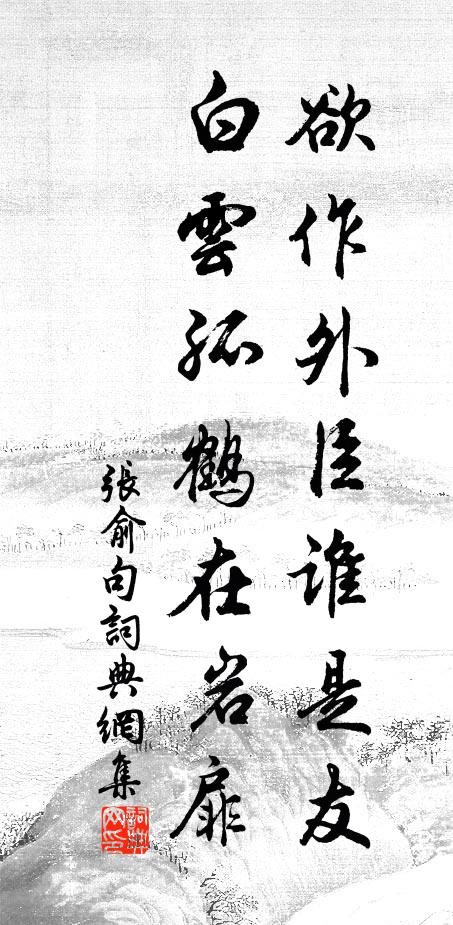 欲作外臣谁是友
白雲孤鶴在岩扉
張俞句詞典網集